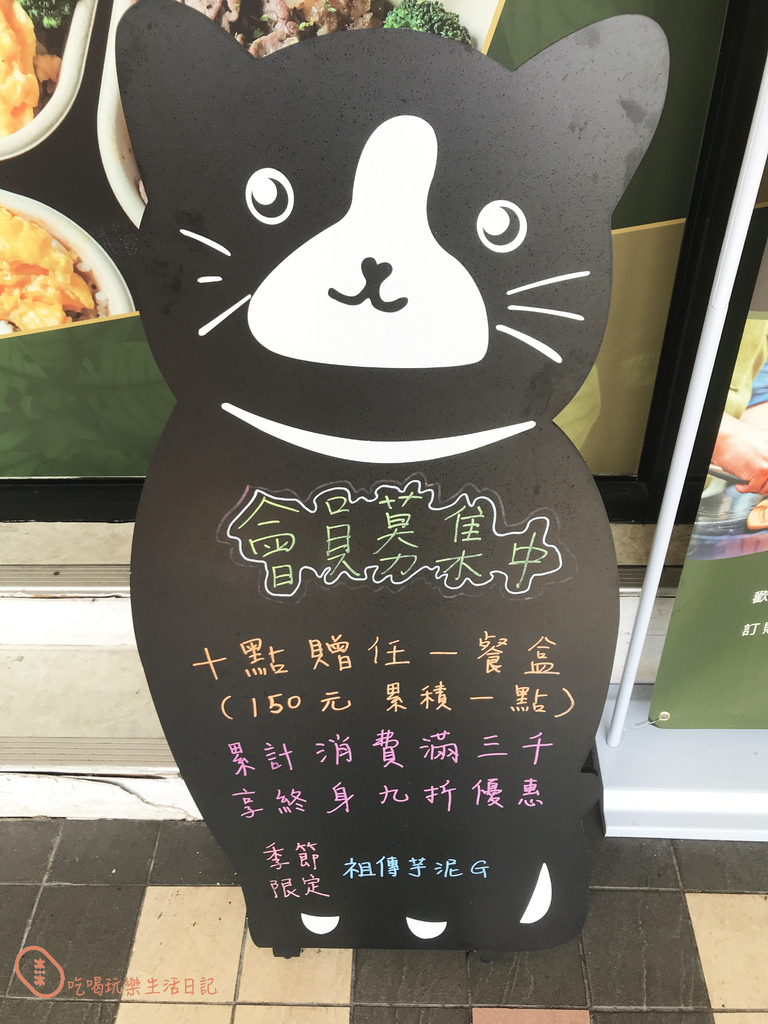 會員募集中
十點贈任一餐盒
(150元 累積一點)
累計消費滿三千
享終身九折優惠
季節
限定
祖傳芋泥G
歡
訂
吃喝玩樂生活日記